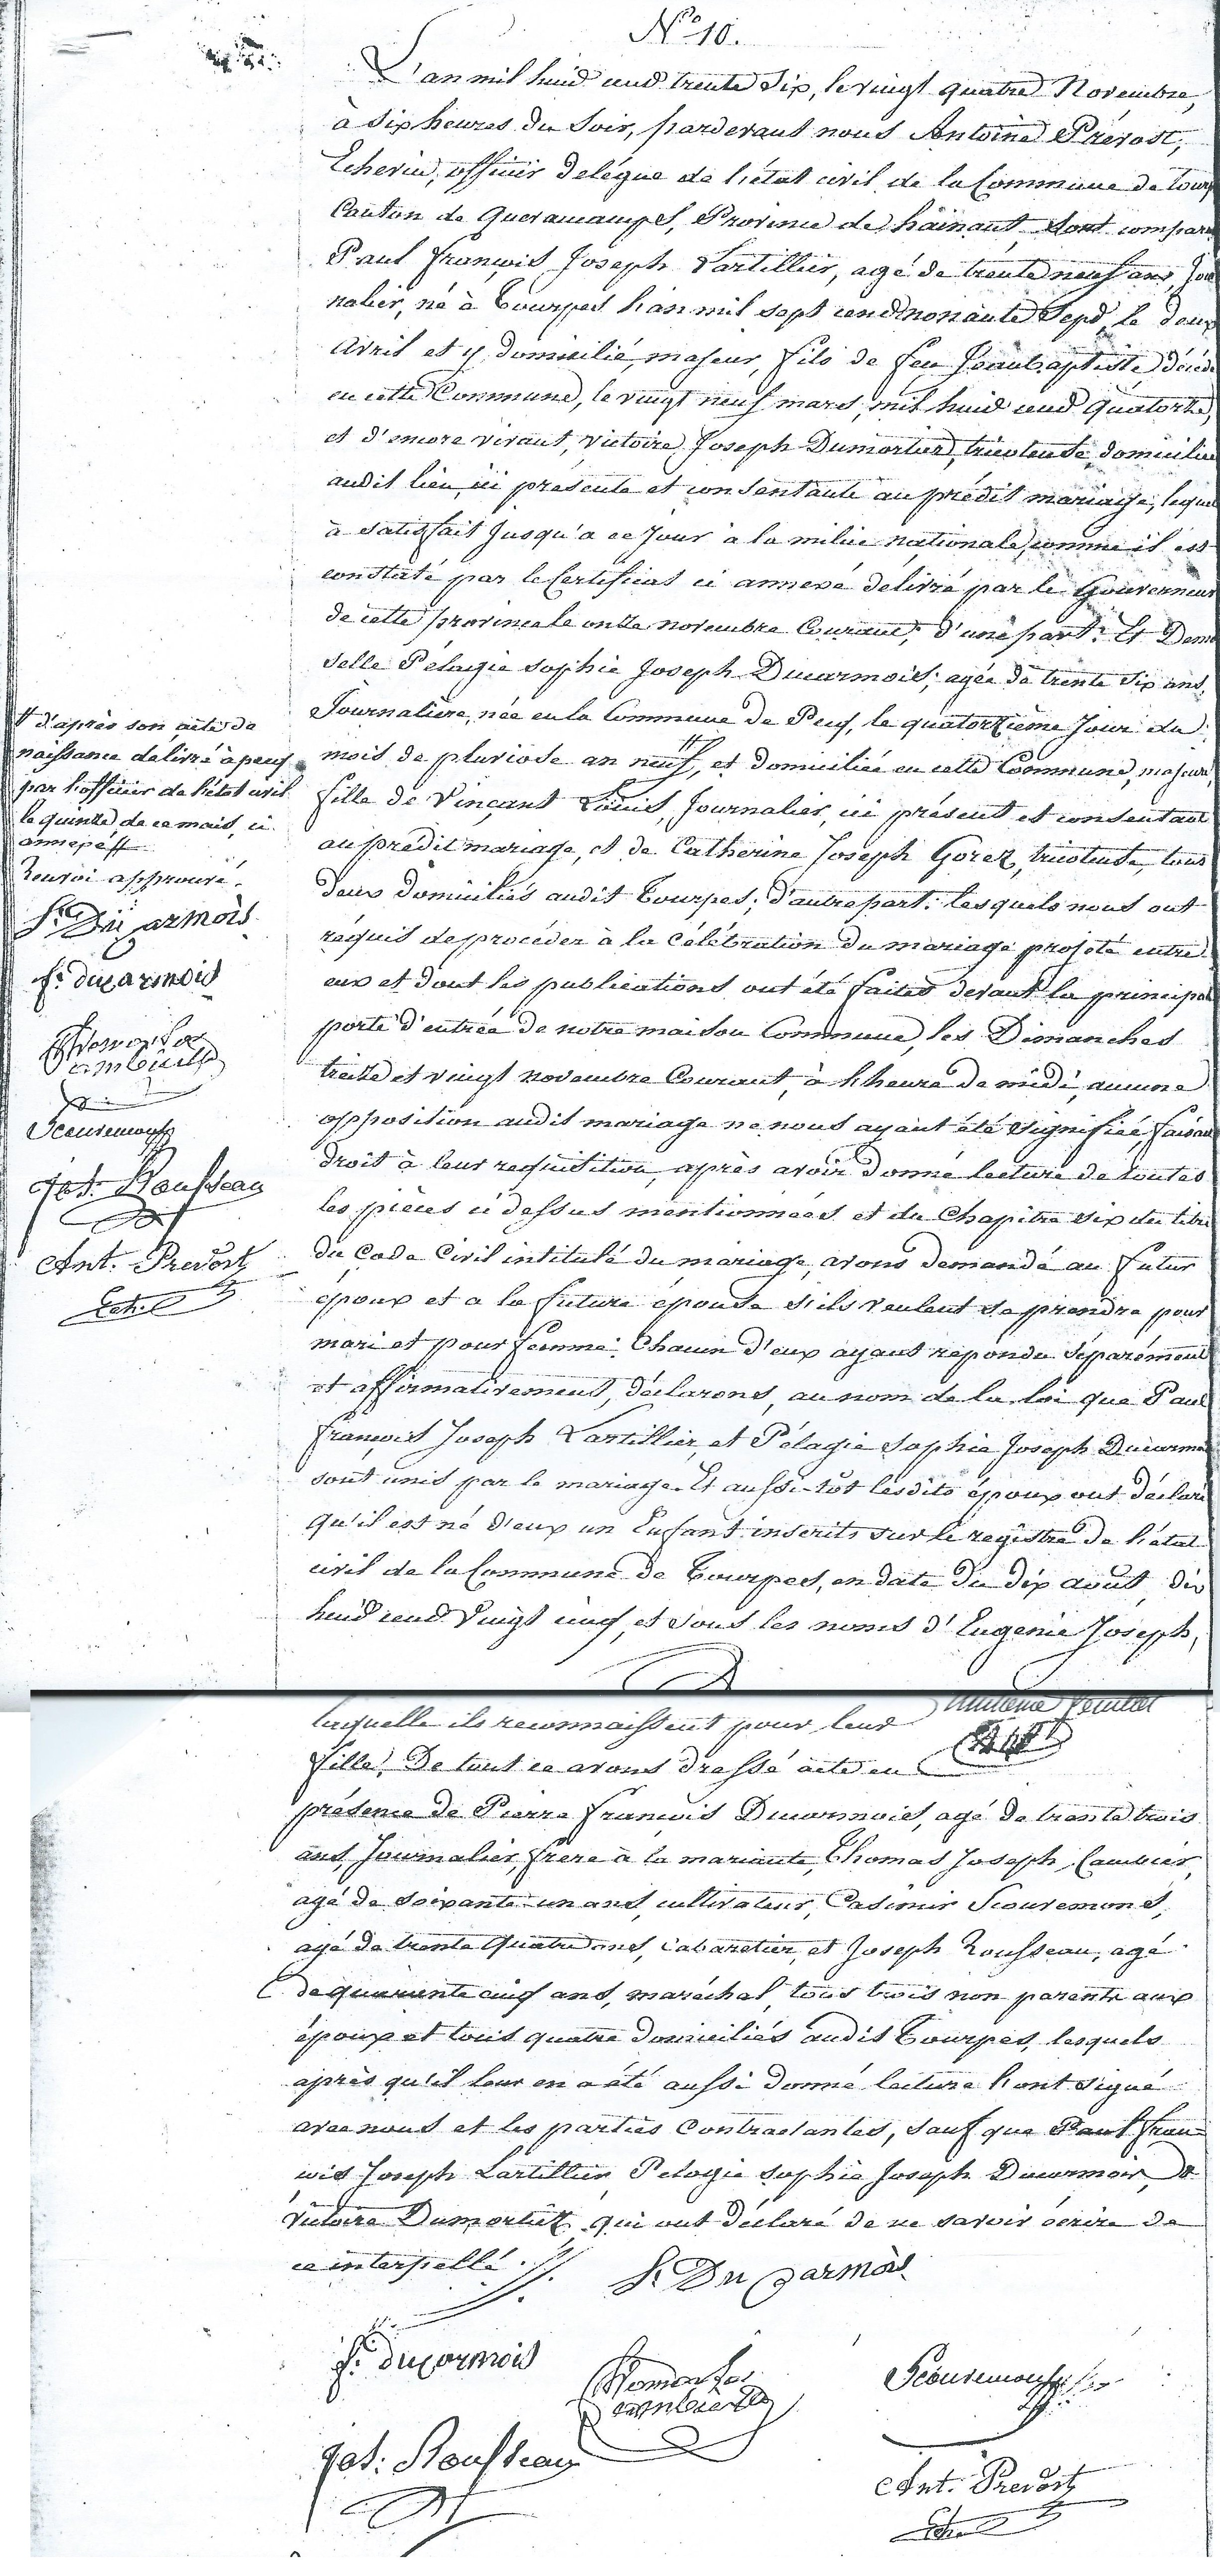 N° 10.
L'an mil huid cend trente Six, le vingt quatre Novembre,
à Six heures du Soir, pardevant nous Antoine Prévost,
Echevin, officier délégué de l'état civil de la Commune de Tourp
Canton de Quevaucamps, Province de hainaut, Sont compar
Paul François Joseph Lartillier, agé de trente neuf ans, Jour
nalier, né à Tourpes l'an mil sept cend nonante Sept, le deux
Avril et y domicilié, majeur, fils de feu Jeanbaptiste, décéd
en cette Commune, le vingt neuf mars, mil huid cend quatorze,
et d'encore vivant, Victoire Joseph Dumortier, tricoteuse, domicilié
audit lieu, ici présente et consentante au prédit mariage, lequel
à Satisfait Jusqu'à ce Jour à la milice nationale, comme il est
constaté par le Certificat ci annexé délivré par le Gouverneur
de cette province le onze novembre Courant, d'une part: Et Demoi
selle Pélagie Sophie Joseph Ducarmois, agée de trente Six ans,
Journalière, née en la Commune de Peuf, le quatorzième Jour du
mois de pluviose an neuf, # et domiciliée en cette Commune, majeure,
fille de Vinçant Louis, Journalier, ici présent et consentant
au prédit mariage, et de Catherine Joseph Gorez, tricoteuse, tous
deux domiciliés audit Tourpes; d'autre part: lesquels nous ont
requis de procéder à la Célébration du mariage projeté entre
eux et dont les publications ont été faites devant la principal
porte d'entrée de notre maison Commune, les Dimanches
treize et vingt novembre Courant, à l'heure de midi, aucune
opposition audit mariage ne nous ayant été signifiée, faisan
droit à leur requisition, après avoir donné lecture de toutes
les pièces ci dessus mentionnées et du Chapitre Six du titre
du Code Civil intitulé du mariage, avons demandé au futur
époux et à la future épouse s'ils veulent se prendre pour
mari et pour femme: Chacun d'eux ayant répondu Séparément
et affirmativement, déclarons, au nom de la loi que Paul
François Joseph Lartillier, et Pélagie Sophie Joseph Ducarmoi
sont unis par le mariage. Et aussi-tôt lesdits époux ont déclaré
Qu'il est né d'eux un Enfant inscrits sur le registre de l'état
civil de la Commune de Tourpes, en date du dix aout, dix
huid cend Vingt cinq, et sous les noms d'Eugenie Joseph,
# d'après son acte de
naissance délivré à peuf
par l'officier de l'état civil
le quinze de ce mois, ci
annexé #
Renvoi approuvé.
Du Carmois
f. ducarmois
Cambier
Scouremont
Jos. Rousseau
Ant. Prevost
Ech.
laquelle ils reconnaissent pour leur
fille. De tout ce avons dressé acte en
présence de Pierre François Ducarmois, agé de trente trois
ans, Journalier, frère à la mariante, Thomas Joseph Cambier,
agé de Soixante-un ans, cultivateur, Casimir Scouremont,
agé de trente Quatre ans, Cabaretier, et Joseph Rousseau, agé
de quarante cinq ans, maréchal, tous trois non parents aux
époux et tous quatre domiciliés audit Tourpes, lesquels
après qu'il leur en a été aussi donné lecture l'ont signé
avec nous et les parties Contractantes, sauf que Paul Fran-
çois Joseph Lartillier Pelagie Sophie Joseph Ducarmois, &
Victoire Dumortier qui ont déclaré de ne savoir écrire de
ce interpellé.
Du Carmois
f. ducarmois
Cambier
Scouremont
Jos. Rousseau
Ant. Prevost
Ech.